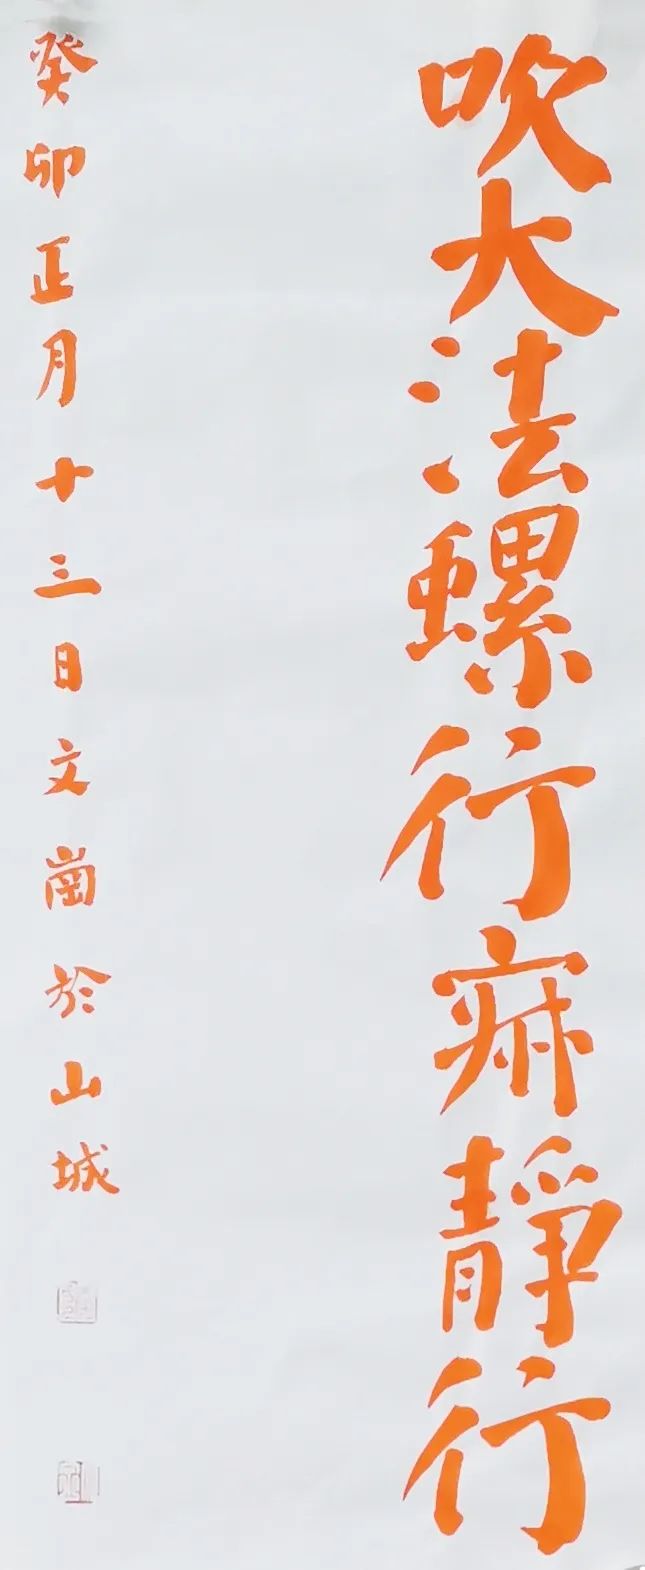 吹大法螺行寂靜行
癸卯正月十三日文崗於山城